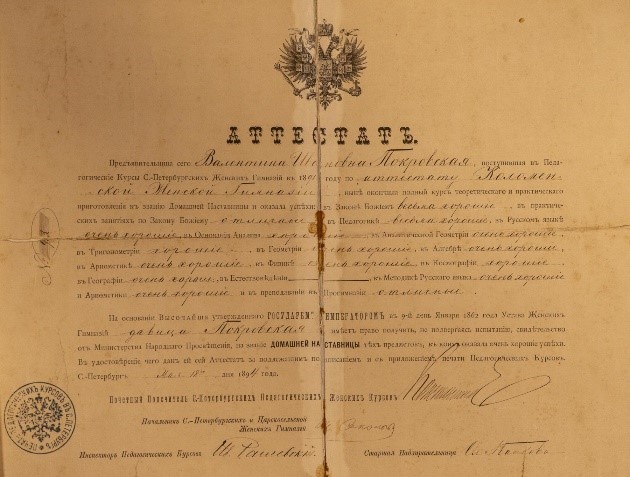 АТТЕСТАТЪ.
Предъявительница сего Валентина Покровская, поступившая въ Педа-
гогическіе Курсы С.-Петербургскихъ Женскихъ Гимназій въ году по аттестату Коломен-
ской Женской Гимназіи, нынѣ окончила полный курсъ теоретическаго и практическаго
приготовленія къ званію Домашней Наставницы и оказала успѣхи: въ Законѣ Божіемъ весьма хорошіе, въ практи-
ческихъ занятіяхъ по Закону Божію отличные, въ Педагогикѣ весьма хорошіе, въ Русскомъ языкѣ
очень хорошіе, въ Основаніи Анализа хорошіе, въ Аналитической Геометріи очень хорошіе,
въ Тригонометріи хорошіе, въ Геометріи очень хорошіе, въ Алгебрѣ очень хорошіе,
въ Ариѳметикѣ очень хорошіе, въ Физикѣ очень хорошіе, въ Космографіи хорошіе,
въ Географіи очень хорошіе, въ Естествовѣдѣніи, въ Методикѣ Русскаго языка очень хорошіе
и Ариѳметики очень хорошіе и въ преподаваніи въ Прогимназіи отличные.
На основаніи Высочайше утвержденнаго ГОСУДАРЕМЪ ИМПЕРАТОРОМЪ въ 9-й день Января 1862 года Устава Женскихъ
Гимназій дѣвица Покровская имѣетъ право получить, не подвергаясь испытанію, свидѣтельство
отъ Министерства Народнаго Просвѣщенія, на званіе ДОМАШНЕЙ НАСТАВНИЦЫ тѣхъ предметовъ, въ коихъ оказала очень хорошіе успѣхи.
Въ удостовѣреніе чего данъ ей сей Аттестатъ за надлежащимъ подписаніемъ и съ приложеніемъ печати Педагогическихъ Курсовъ.
С.-Петербургъ Мая дня 1894 года.
Почетный Попечитель С.-Петербургскихъ Педагогическихъ Женскихъ Курсовъ
Начальникъ С.-Петербургскихъ и Царскосельской
Женскихъ Гимназій
Инспекторъ Педагогическихъ Курсовъ Старшая Надзирательница